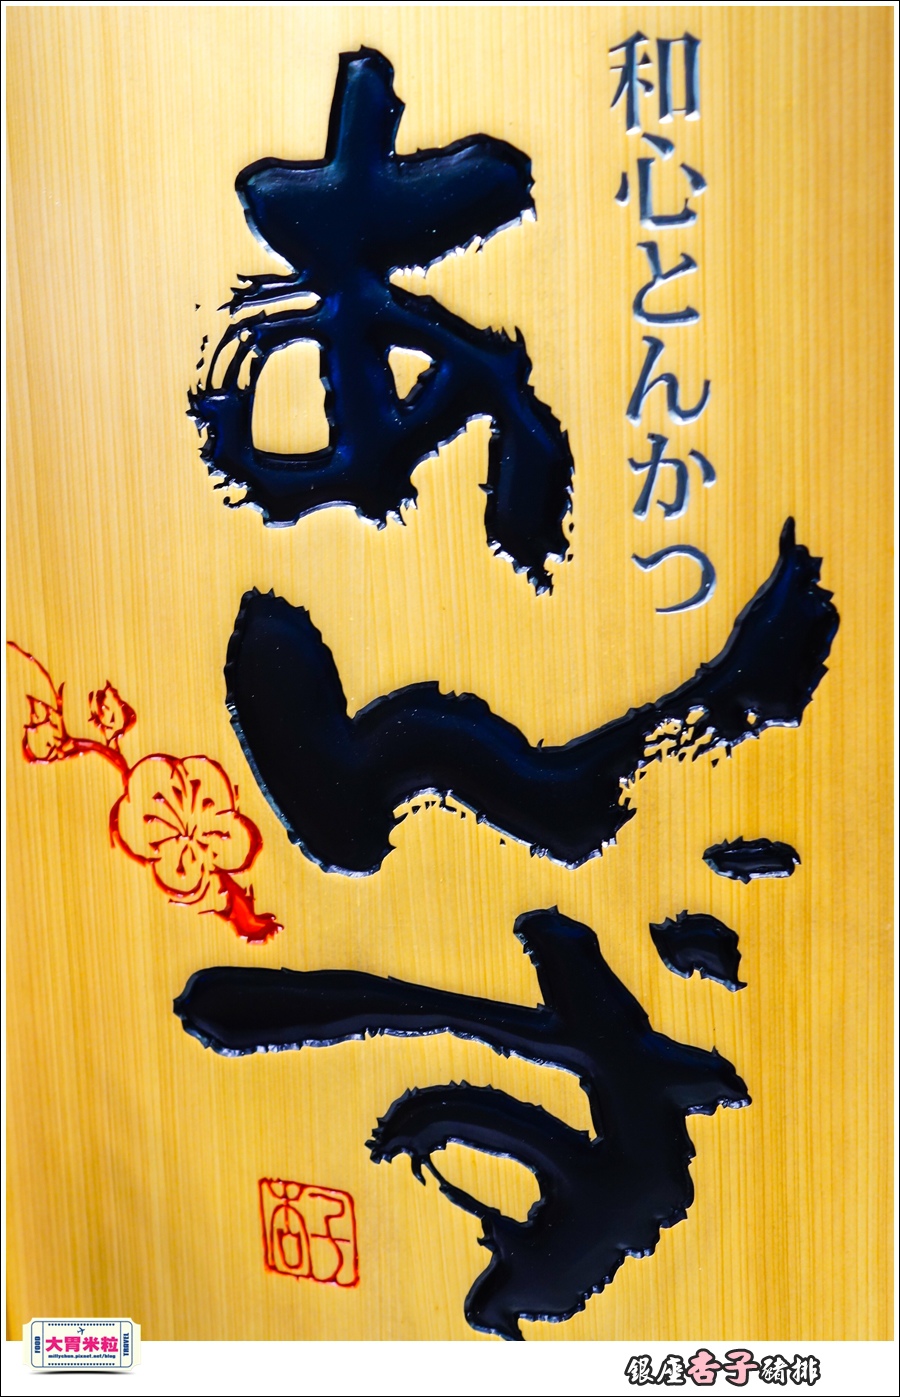 和心とんかつ
あんず
杏子
FOOD
大胃米粒
millychun.pixnet.net/blog
TRAVEL
銀座杏子豬排